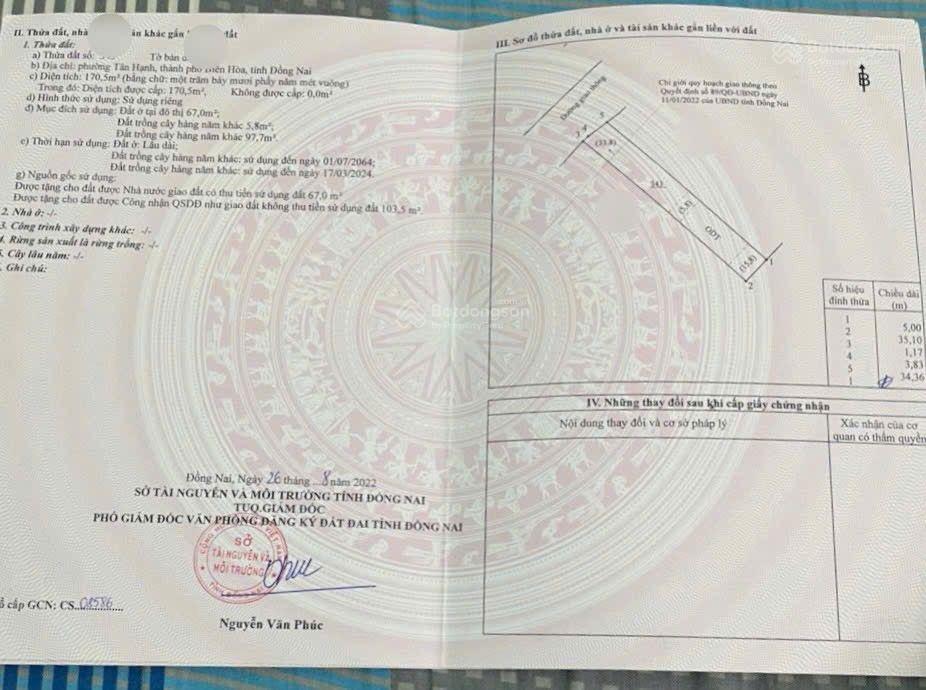 II. Thửa đất, nhà ản khác gắn đất
1. Thửa đất:
a) Thửa đất số: Tờ bản
b) Địa chỉ: phường Tân Hạnh, thành phố Biên Hòa, tỉnh Đồng Nai
c) Diện tích: 170,5m² (bằng chữ: một trăm bảy mươi phẩy năm mét vuông)
Trong đó: Diện tích được cấp: 170,5m², Không được cấp: 0,0m²
d) Hình thức sử dụng: Sử dụng riêng
đ) Mục đích sử dụng: Đất ở tại đô thị 67,0m²;
Đất trồng cây hàng năm khác 5,8m²;
Đất trồng cây hàng năm khác 97,7m².
e) Thời hạn sử dụng: Đất ở: Lâu dài;
Đất trồng cây hàng năm khác: sử dụng đến ngày 01/07/2064;
Đất trồng cây hàng năm khác: sử dụng đến ngày 17/03/2024.
g) Nguồn gốc sử dụng:
Được tặng cho đất được Nhà nước giao đất có thu tiền sử dụng đất 67,0 m²
Được tặng cho đất được Công nhận QSDĐ như giao đất không thu tiền sử dụng đất 103,5 m².
2. Nhà ở: -/-
3. Công trình xây dựng khác: -/-
4. Rừng sản xuất là rừng trồng: -/-
5. Cây lâu năm: -/-
6. Ghi chú:
Đồng Nai, Ngày 26 tháng 8 năm 2022
SỞ TÀI NGUYÊN VÀ MÔI TRƯỜNG TỈNH ĐỒNG NAI
TUQ.GIÁM ĐỐC
PHÓ GIÁM ĐỐC VĂN PHÒNG ĐĂNG KÝ ĐẤT ĐAI TỈNH ĐỒNG NAI
SỞ
TÀI NGUYÊN VÀ
MÔI TRƯỜNG
Nguyễn Văn Phúc
ố cấp GCN: CS.08586
III. Sơ đồ thửa đất, nhà ở và tài sản khác gắn liền với đất
Chỉ giới quy hoạch giao thông theo
Quyết định số 89/QĐ-UBND ngày
11/01/2022 của UBND tỉnh Đồng Nai
B
Đường giao thông
3 4 5
(33,8)
242
(5,8)
ODT
(15,8)
1
2
Số hiệu đỉnh thửa Chiều dài (m)
1
5,00
2
35,10
3
1,17
4
3,83
5
34,36
1
IV. Những thay đổi sau khi cấp giấy chứng nhận
Nội dung thay đổi và cơ sở pháp lý
Xác nhận của cơ
quan có thẩm quyền
Batdongsan
.com
by PropertyGuru
Batdongsan